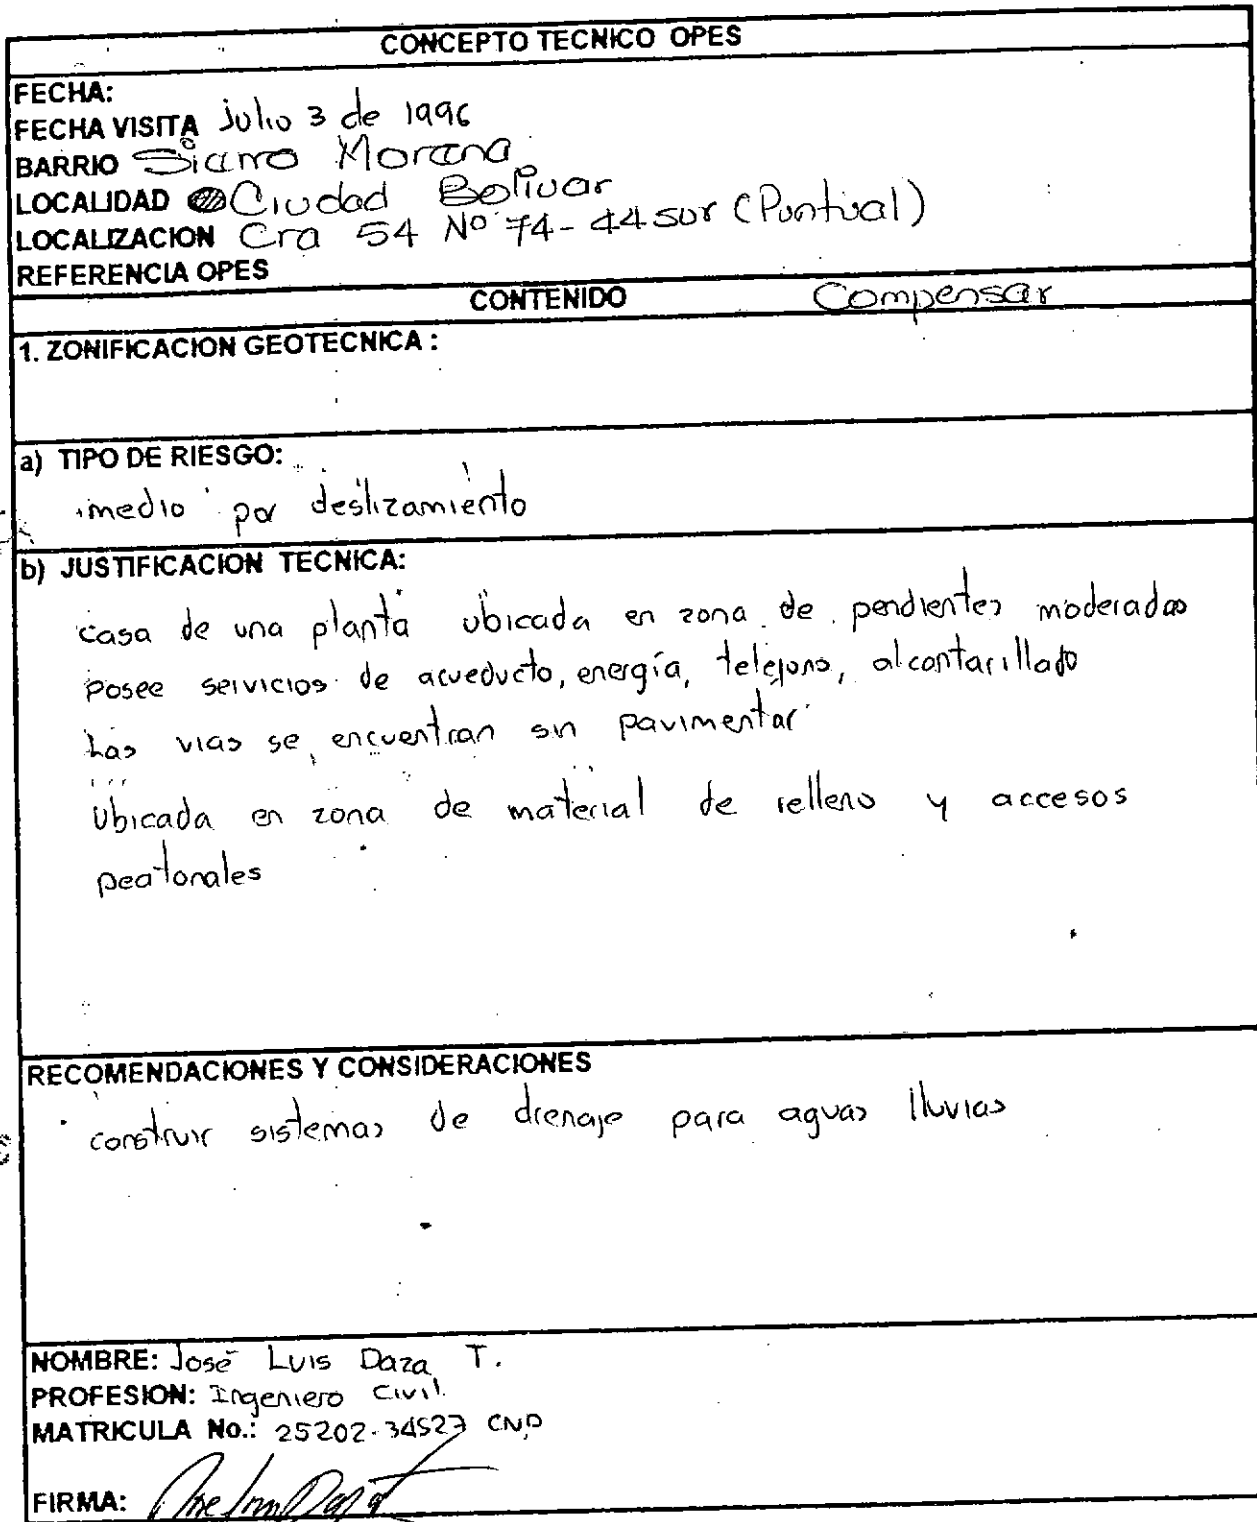 CONCEPTO TECNICO OPES
FECHA:
FECHA VISITA Julio 3 de 1996
BARRIO Sierra Morena
LOCALIDAD Ciudad Bolivar
LOCALIZACION Cra 54 Nº 74-44 sur (Puntual)
REFERENCIA OPES
CONTENIDO Compensar
1. ZONIFICACION GEOTECNICA :
a) TIPO DE RIESGO:
medio por deslizamiento
b) JUSTIFICACION TECNICA:
casa de una planta ubicada en zona de pendientes moderadas
Posee servicios de acueducto, energía, telefono, alcantarillado
Las vias se encuentran sin pavimentar
Ubicada en zona de material de relleno y accesos
peatonales
RECOMENDACIONES Y CONSIDERACIONES
construir sistemas de drenaje para aguas lluvias
NOMBRE: José Luis Daza T.
PROFESION: Ingeniero Civil.
MATRICULA No.: 25202-34527 CND
FIRMA: